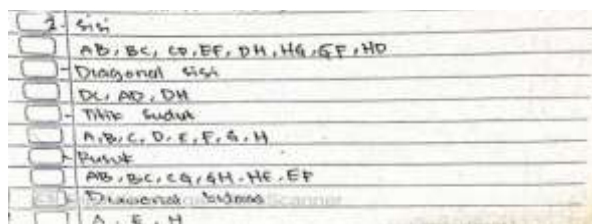 2- Sisi
AB, BC, CD, EF, DH, HG, GF, HD
- Diagonal sisi
DC, AD, DH
- Titik Sudut
A, B, C, D, E, F, G, H
- Rusuk
AB, BC, CG, GH, HE, EF
Scanner
A, E, H